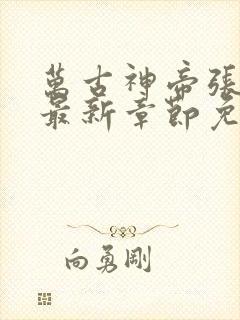 萬古神帝張
最新章節免
向勇剛